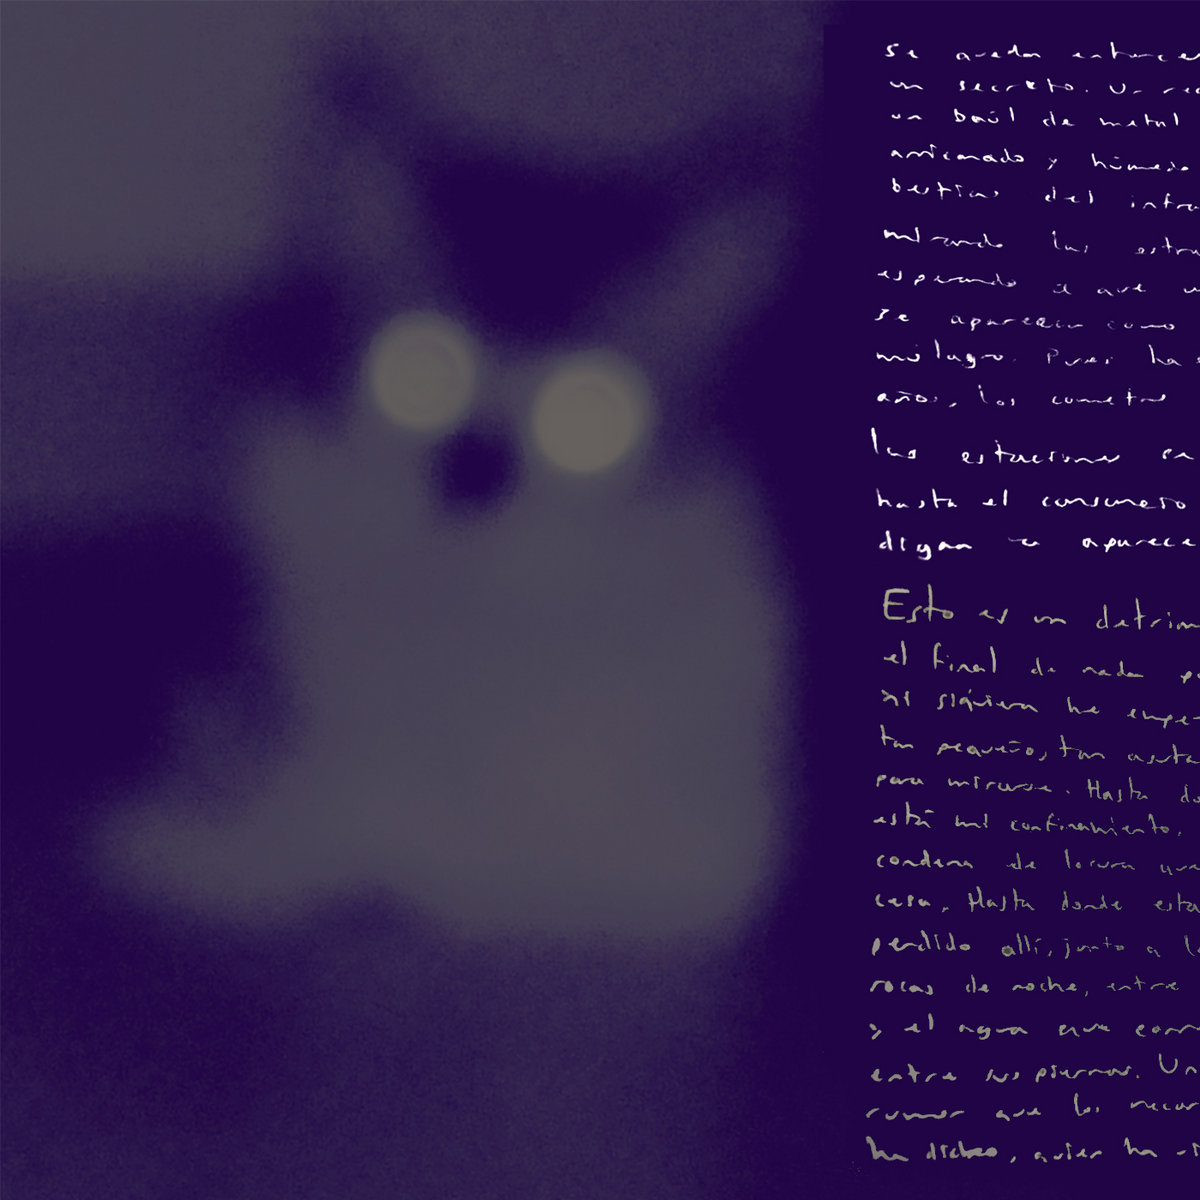 Se quedan entonces
un secreto. Un rec
un baúl de metal
arrinconado y húmedo
bestias del infra
mirando las estre
esperando a que u
se aparezca como
milagro. Pues ha
años, los cometas
las estaciones en
hasta el cansancio
digan se aparece
Esto es un detrim
el final de nada po
ni siquiera he empe
tan pequeño, tan asusta
para mirarse. Hasta do
está mi confinamiento,
condena de locura que
casa. Hasta donde esta
perdido allí, junto a l
rocas de noche, entre
y el agua que corr
entre sus piernas. Un
rumor que los recor
ha dicho, quien ha vi